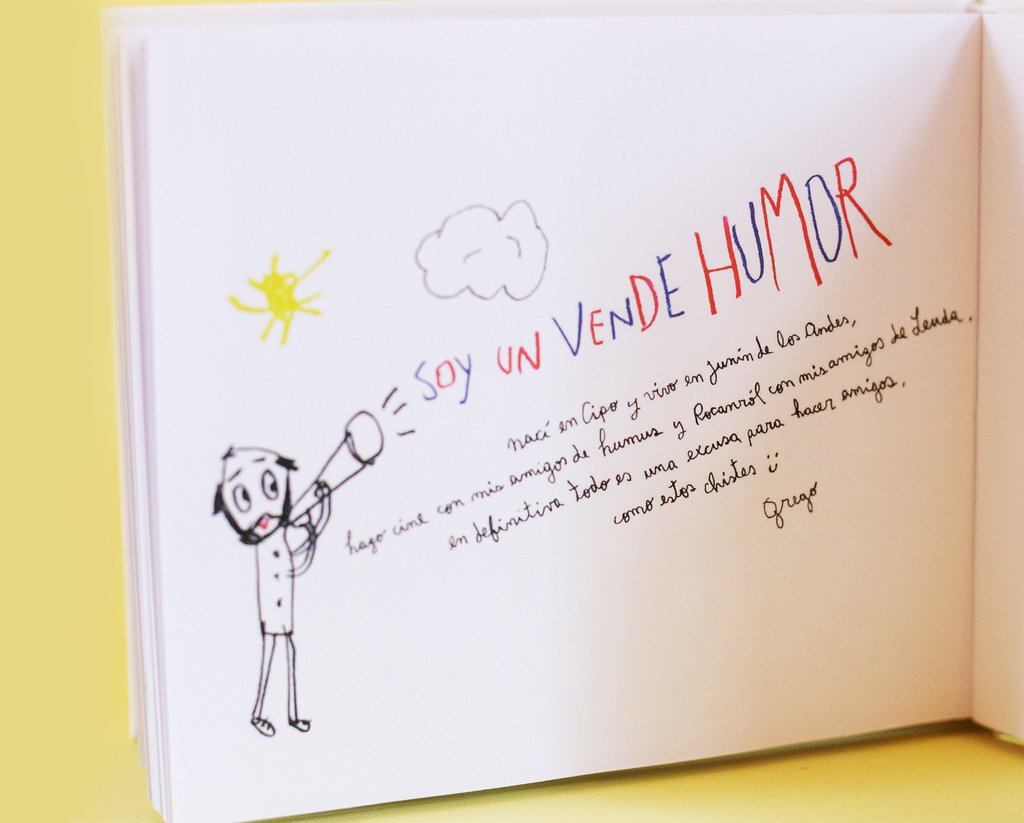 SOY UN VENDE HUMOR
nací en Cipo y vivo en Junín de los Andes,
hago cine con mis amigos de humus y Rocanról con mis amigos de Leuda.
en definitiva todo es una excusa para hacer amigos,
como estos chistes :)
Grego